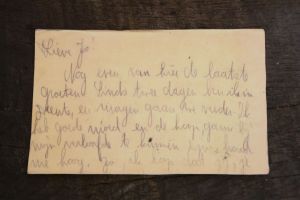 Lieve Jo'
Nog even van hier de laatste
groeten! Sinds twee dagen ben ik in
en morgen gaan we verder. Ik
heb goede moed en de hoop, gauw
mijn te kunnen
me hoog. Jo, ik hoop dat